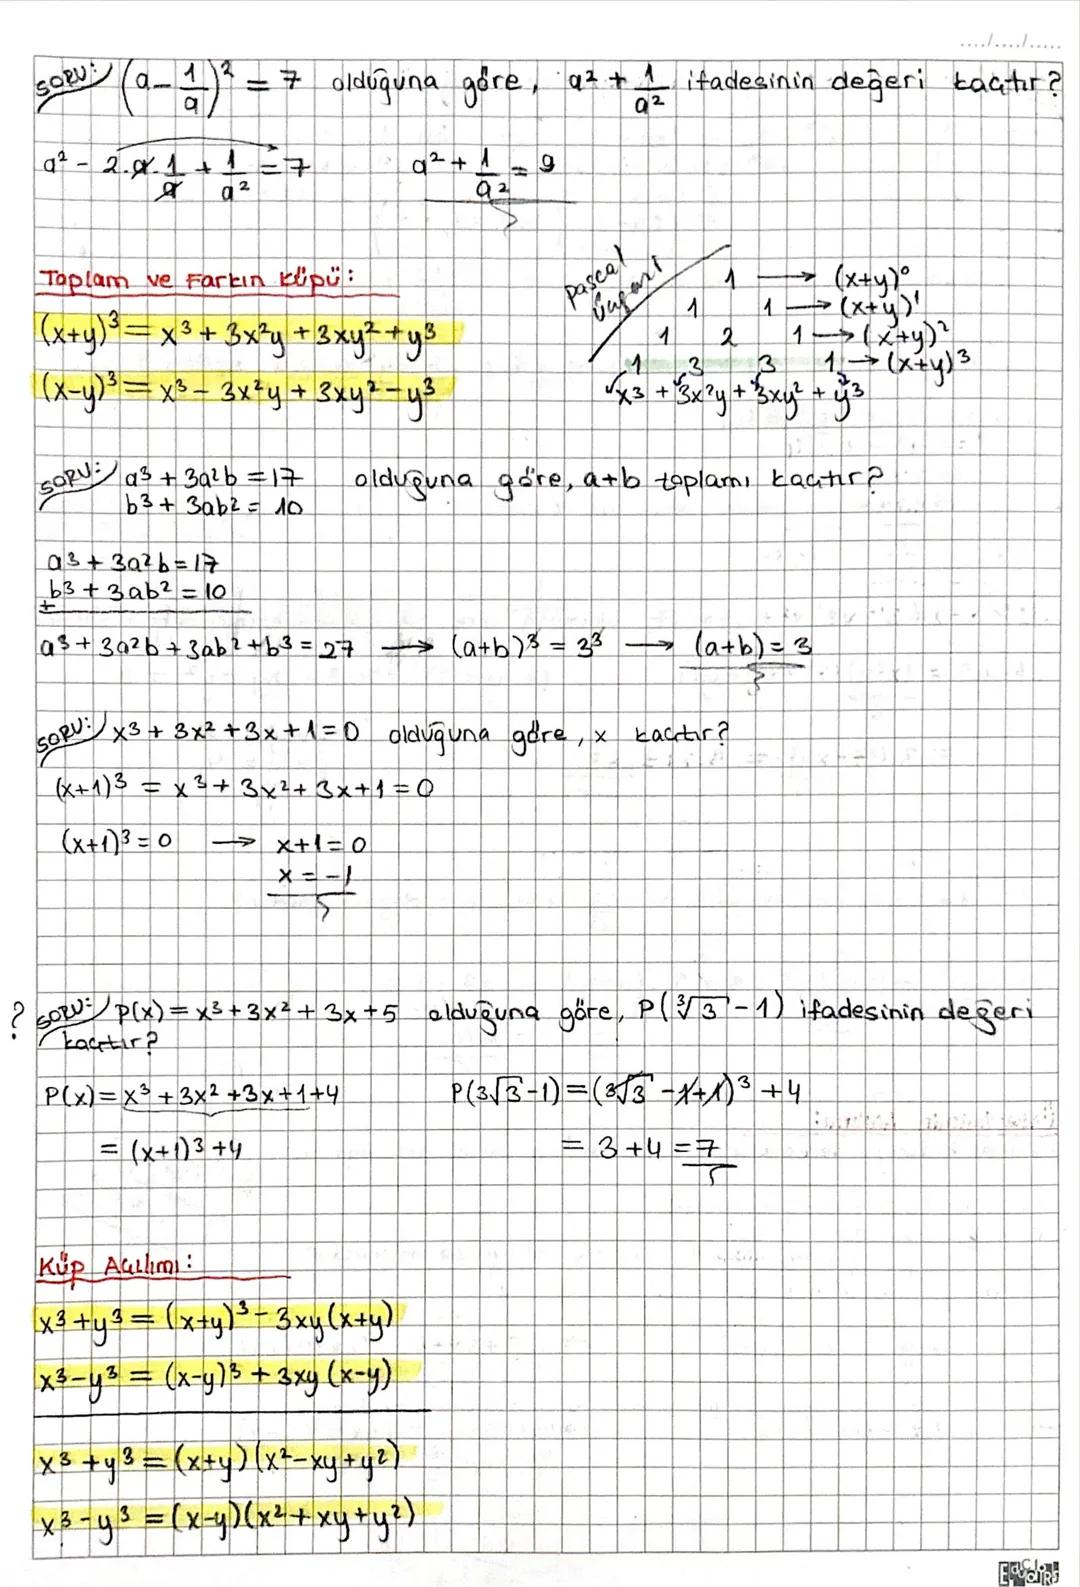 ..../..../.....
SORU: (a - 1/a)² = 7 olduğuna göre, a² + 1/a² ifadesinin değeri kaçtır?
a² - 2.a.1/a + 1/a² = 7    a² + 1/a² = 9
Toplam ve Farkın Küpü:
(x+y)³ = x³ + 3x²y + 3xy² + y³
(x-y)³ = x³ - 3x²y + 3xy² - y³
pascal üçgeni
1 → (x+y)⁰
1 1 → (x+y)¹
1 2 1 → (x+y)²
1 3 3 1 → (x+y)³
x³ + 3x²y + 3xy² + y³
SORU: a³ + 3a²b = 17 olduğuna göre, a+b toplamı kaçtır?
b³ + 3ab² = 10
a³ + 3a²b = 17
b³ + 3ab² = 10
+
a³ + 3a²b + 3ab² + b³ = 27 → (a+b)³ = 3³ → (a+b) = 3
SORU: x³ + 3x² + 3x + 1 = 0 olduğuna göre, x kaçtır?
(x+1)³ = x³ + 3x² + 3x + 1 = 0
(x+1)³ = 0 → x+1 = 0
x = -1
? SORU: P(x) = x³ + 3x² + 3x + 5 olduğuna göre, P(³√3 - 1) ifadesinin değeri
kaçtır?
P(x) = x³ + 3x² + 3x + 1 + 4    P(3√3 - 1) = (³√3 - 1 + 1)³ + 4
= (x+1)³ + 4    = 3 + 4 = 7
Küp Açılımı:
x³ + y³ = (x+y)³ - 3xy(x+y)
x³ - y³ = (x-y)³ + 3xy(x-y)
x³ + y³ = (x+y)(x² - xy + y²)
x³ - y³ = (x-y)(x² + xy + y²)